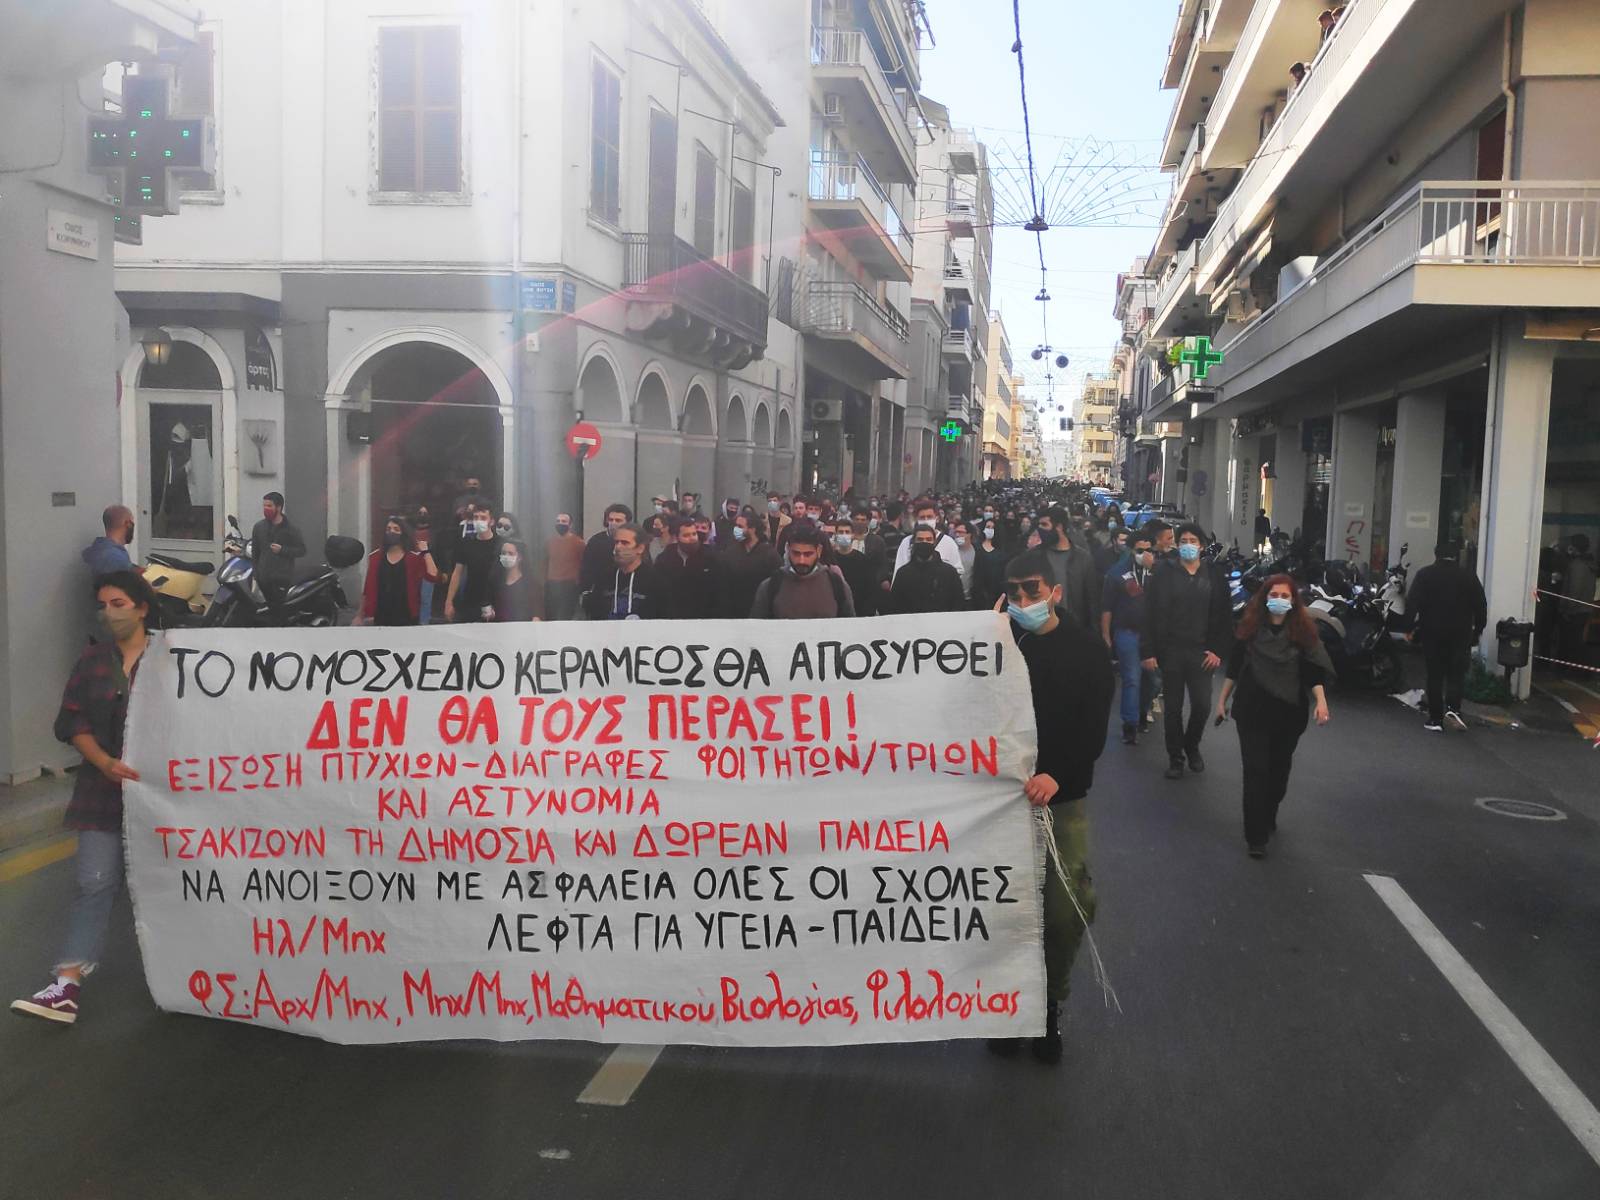 ΟΔΟΣ
ΚΟΡΙΝΘΟΥ
ΤΟ ΝΟΜΟΣΧΕΔΙΟ ΚΕΡΑΜΕΩΣ ΘΑ ΑΠΟΣΥΡΘΕΙ
ΔΕΝ ΘΑ ΤΟΥΣ ΠΕΡΑΣΕΙ!
ΕΞΙΣΩΣΗ ΠΤΥΧΙΩΝ-ΔΙΑΓΡΑΦΕΣ ΦΟΙΤΗΤΩΝ/ΤΡΙΩΝ
ΚΑΙ ΑΣΤΥΝΟΜΙΑ
ΤΣΑΚΙΖΟΥΝ ΤΗ ΔΗΜΟΣΙΑ ΚΑΙ ΔΩΡΕΑΝ ΠΑΙΔΕΙΑ
ΝΑ ΑΝΟΙΞΟΥΝ ΜΕ ΑΣΦΑΛΕΙΑ ΟΛΕΣ ΟΙ ΣΧΟΛΕΣ
Ηλ/Μηχ ΛΕΦΤΑ ΓΙΑ ΥΓΕΙΑ-ΠΑΙΔΕΙΑ
Φ.Σ: Αρχ/Μηχ, Μηχ/Μηχ, Μαθηματικού, Βιολογίας, Φιλολογίας